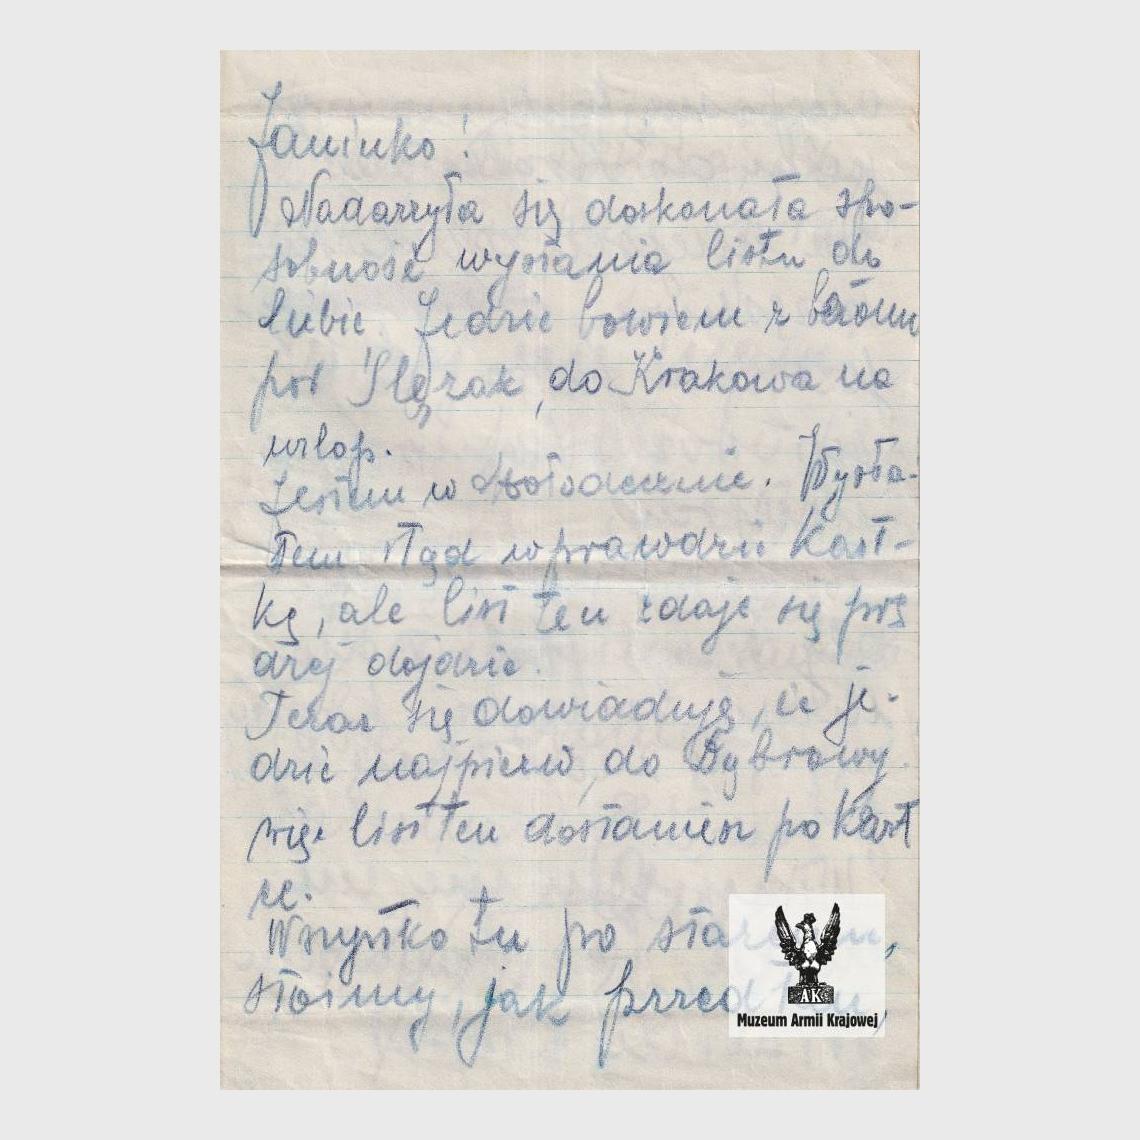 Janinko!
Nadarzyła się doskonała spo-
sobność wysłania listu do
Ciebie Jedzie bowiem z baonu
por Ślęzak, do Krakowa na
urlop.
Jestem w Mołodecznie. Wysła-
łem stąd wprawdzie kart-
kę, ale list ten zdaje się prę
dzej dojdzie.
Teraz się dowiaduję, że je-
dzie najpierw, do Dąbrowy.
więc list ten dostaniesz po kart
ce.
Wszystko tu po staremu,
stoimy, jak przedtem,
AK
Muzeum Armii Krajowej